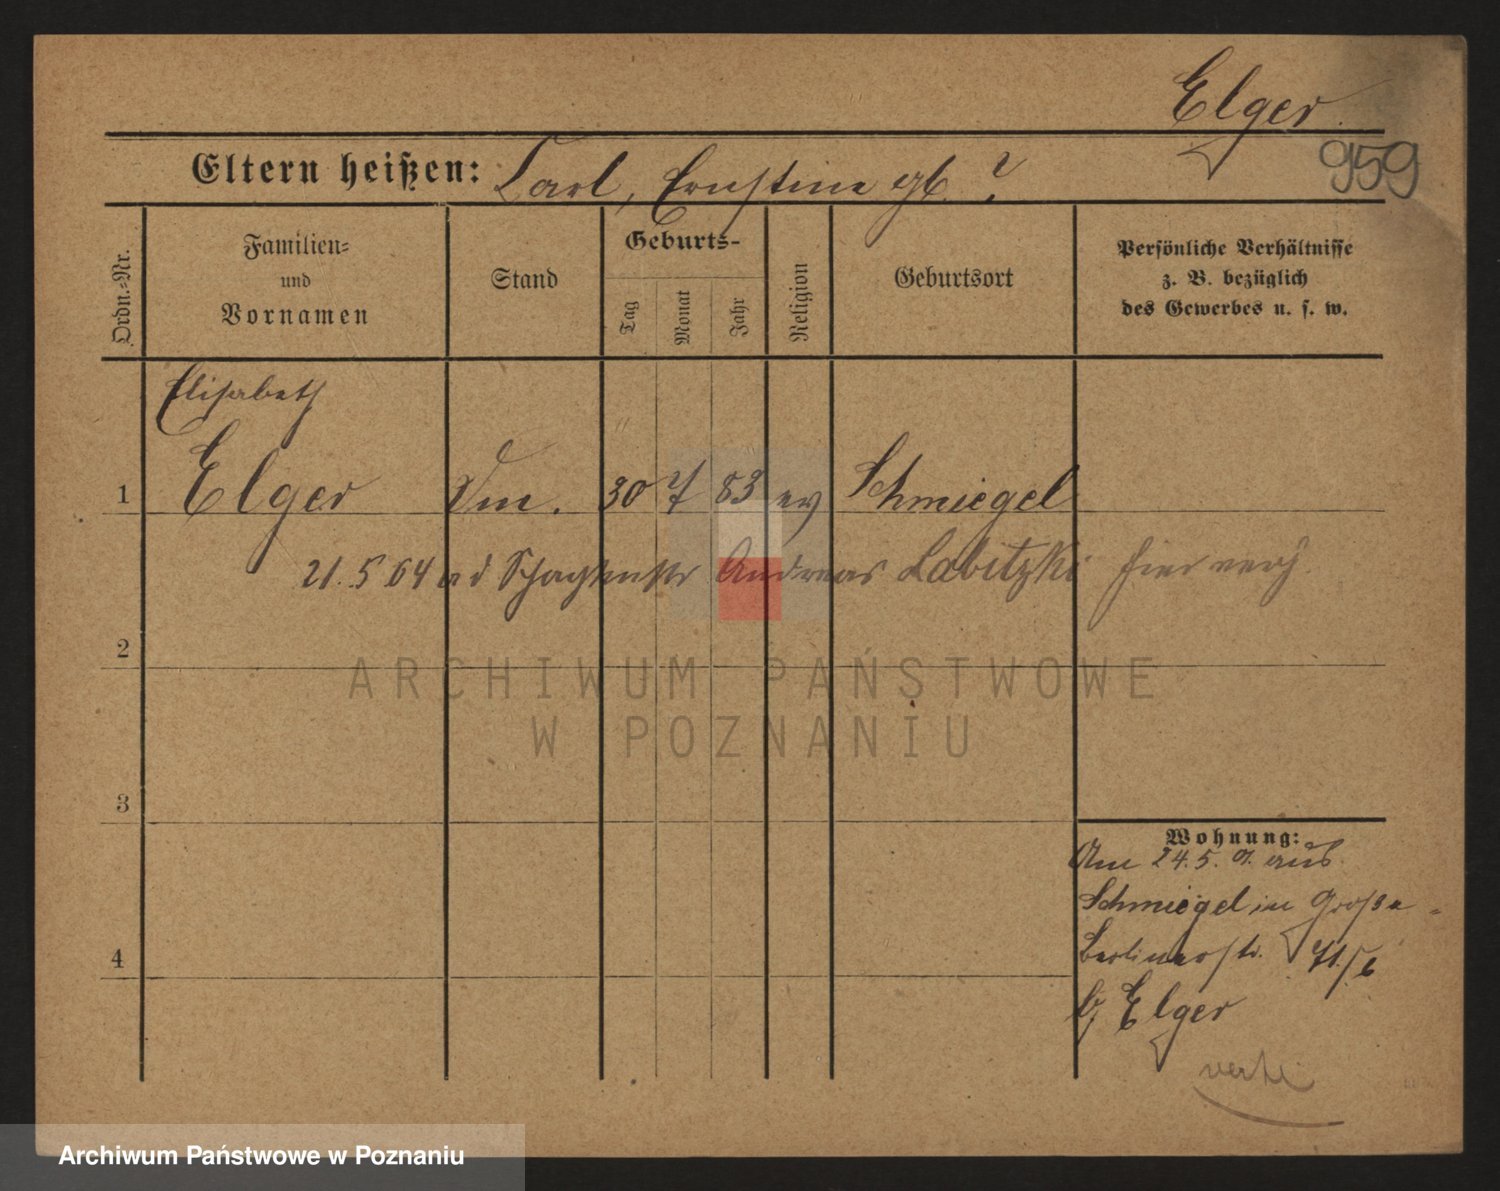 Elger
959
Eltern heißen: Carl, Ernstine gb. ?
Ordn.=Nr.
Familien= und Vornamen
Stand
Geburts-
Tag
Monat
Jahr
Religion
Geburtsort
Persönliche Verhältnisse
z. B. bezüglich
des Gewerbes u. s. w.
Elisabeth
1 Elger 30 7 83 ev Schmiegel
21. 5 04 Andreas Labitzki hier
2
ARCHIWUM PAŃSTWOWE
W POZNANIU
3
Wohnung:
Am 24. 5. 01. aus
Schmiegel in Große
4
Berlinerstr. 71
b/ Elger
Archiwum Państwowe w Poznaniu